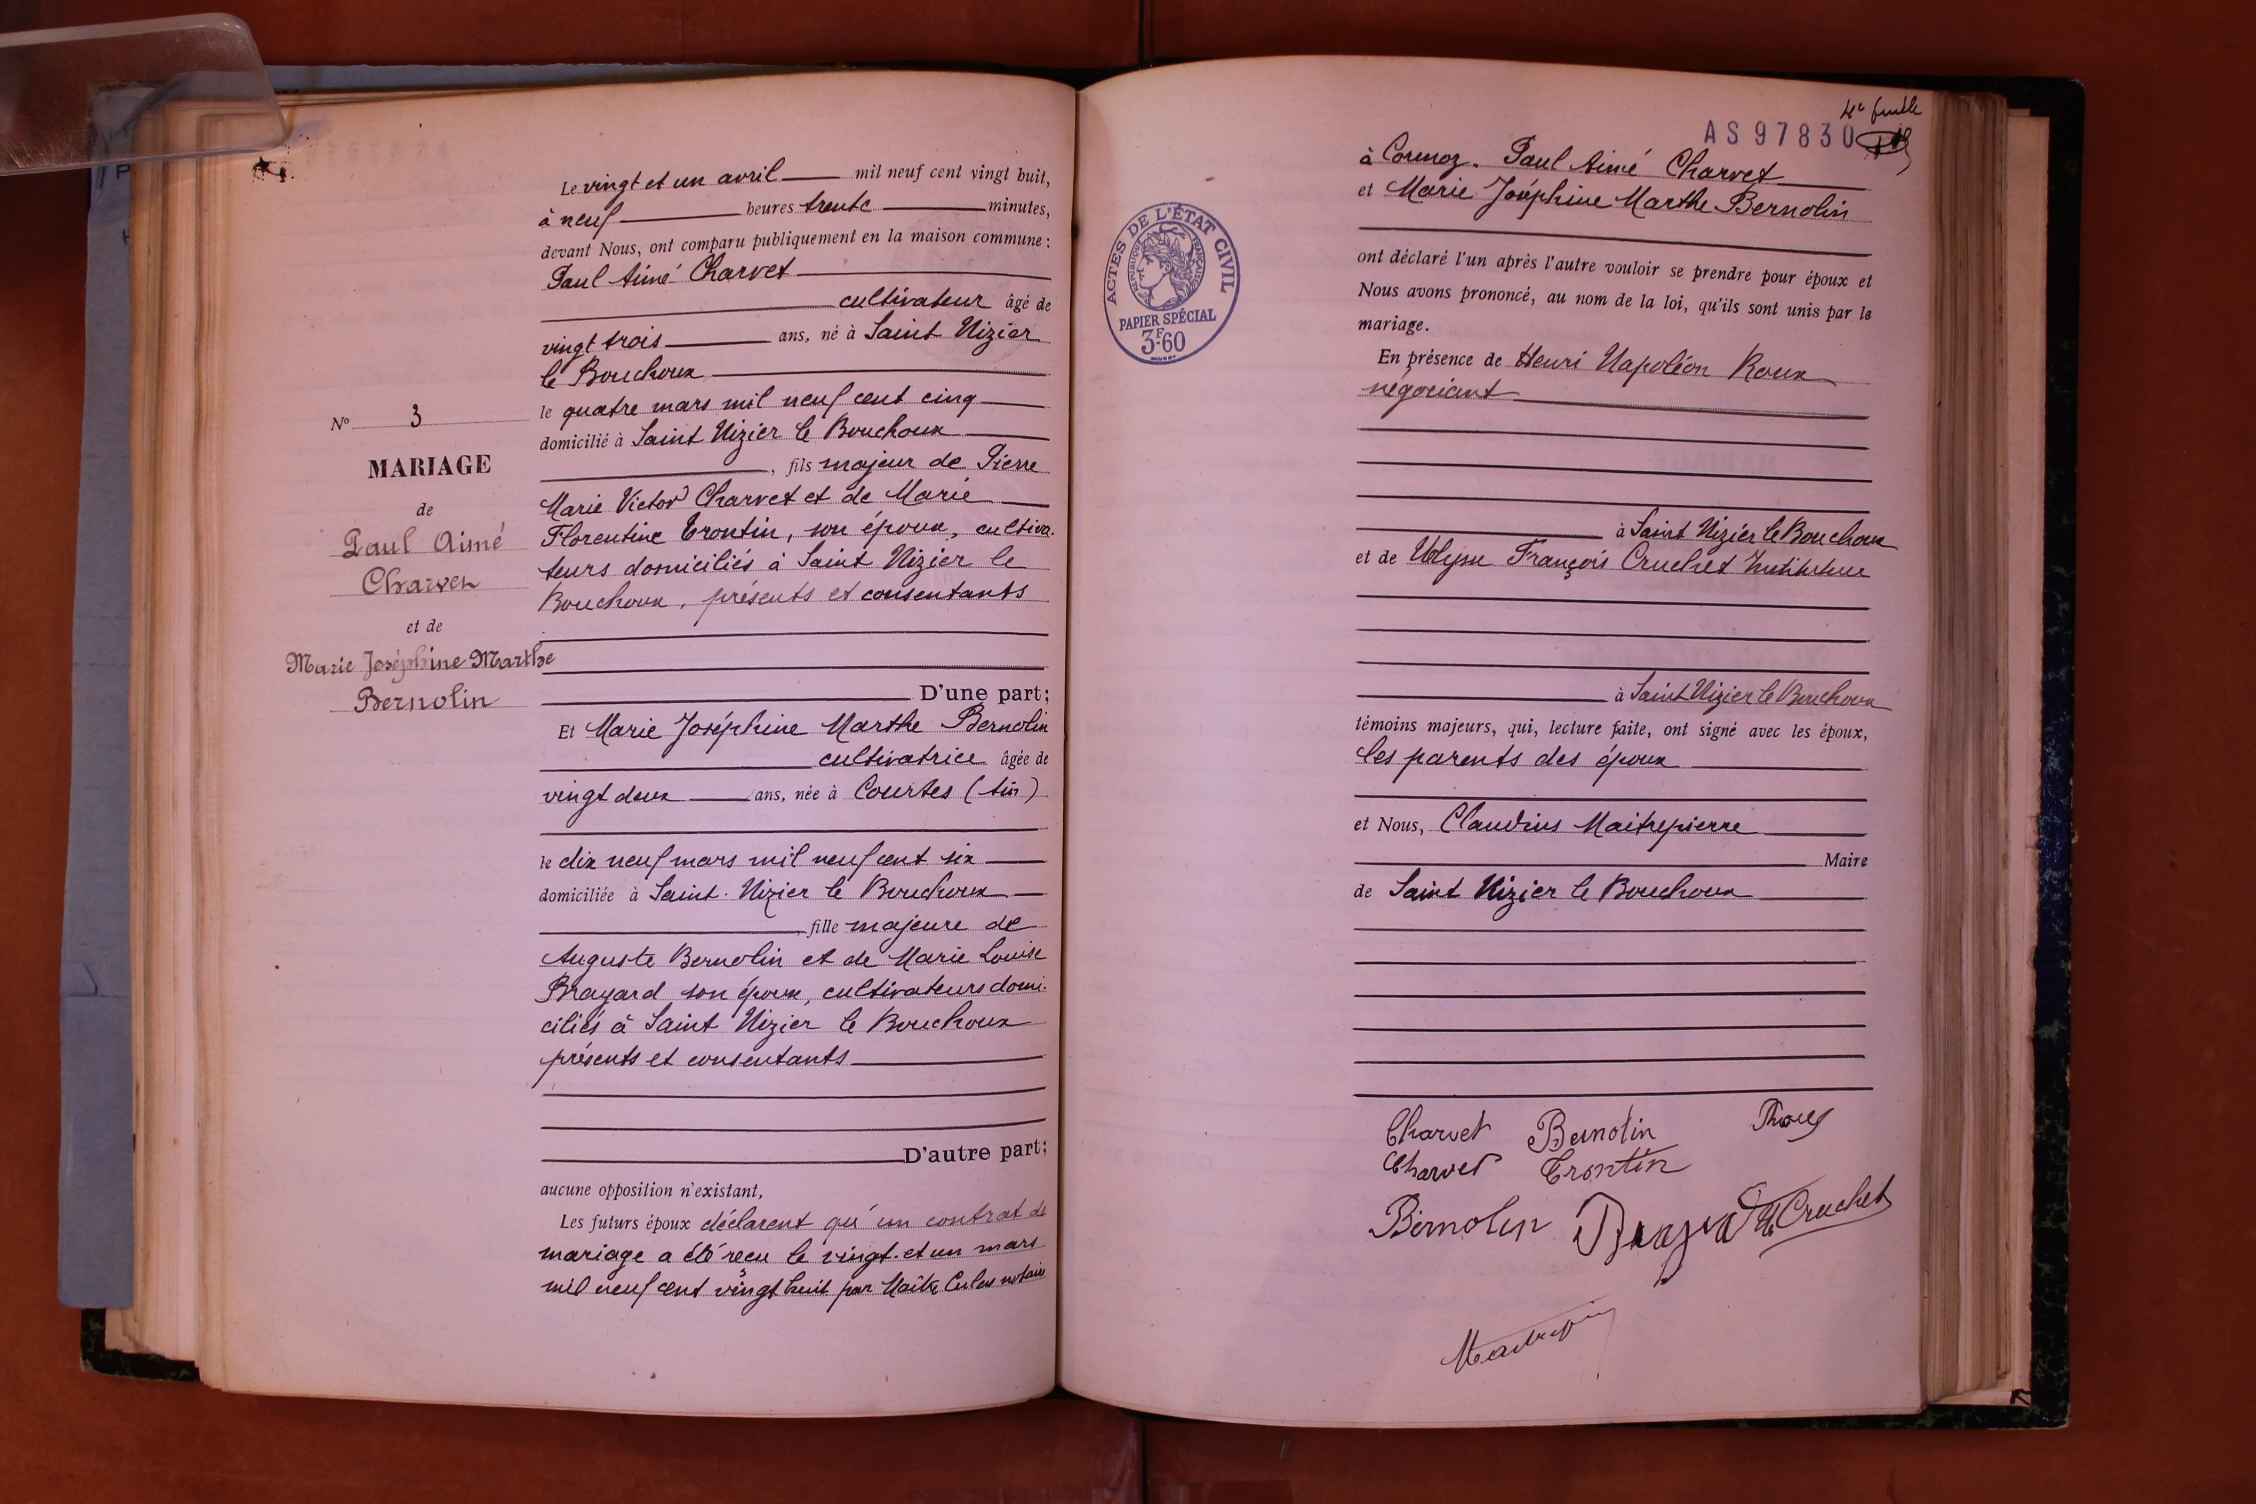 Le vingt et un avril mil neuf cent vingt huit,
à neuf heures trente minutes,
devant Nous, ont comparu publiquement en la maison commune :
Paul Aimé Charvet
cultivateur âgé de
vingt trois ans, né à Saint Nizier
le Bouchoux
le quatre mars mil neuf cent cinq
domicilié à Saint Nizier le Bouchoux
, fils majeur de Pierre
Marie Victor Charvet et de Marie
Florentine Trontin, son époux, cultiva-
teurs domiciliés à Saint Nizier le
Bouchoux, présents et consentants
D'une part;
Et Marie Joséphine Marthe Bernolin
cultivatrice âgée de
vingt deux ans, née à Courtes (Ain)
le dix neuf mars mil neuf cent six
domiciliée à Saint-Nizier le Bouchoux
, fille majeure de
Auguste Bernolin et de Marie Louise
Brayard son époux, cultivateurs domi-
ciliés à Saint Nizier le Bouchoux
présents et consentants
D'autre part;
aucune opposition n'existant,
Les futurs époux déclarent qu'un contrat de
mariage a été reçu le vingt-et un mars
mil neuf cent vingt huit par Maître notaire
No 3
MARIAGE
de
Paul Aimé
Charvet
et de
Marie Joséphine Marthe
Bernolin
4e feuille
AS97830
à Cormoz. Paul Aimé Charvet
et Marie Joséphine Marthe Bernolin
ont déclaré l'un après l'autre vouloir se prendre pour époux et
Nous avons prononcé, au nom de la loi, qu'ils sont unis par le
mariage.
En présence de Henri Napoléon Roux
négociant
à Saint Nizier le Bouchoux
et de Ulysse François Cruchet Instituteur
à Saint Nizier le Bouchoux
témoins majeurs, qui, lecture faite, ont signé avec les époux,
les parents des époux
et Nous, Claudius Maitrepierre
Maire
de Saint Nizier le Bouchoux
ACTES DE L'ÉTAT CIVIL
RÉPUBLIQUE FRANÇAISE
PAPIER SPÉCIAL
3F.60
Charvet Bernolin
Charvet Trontin
Bernolin Brayard Cruchet